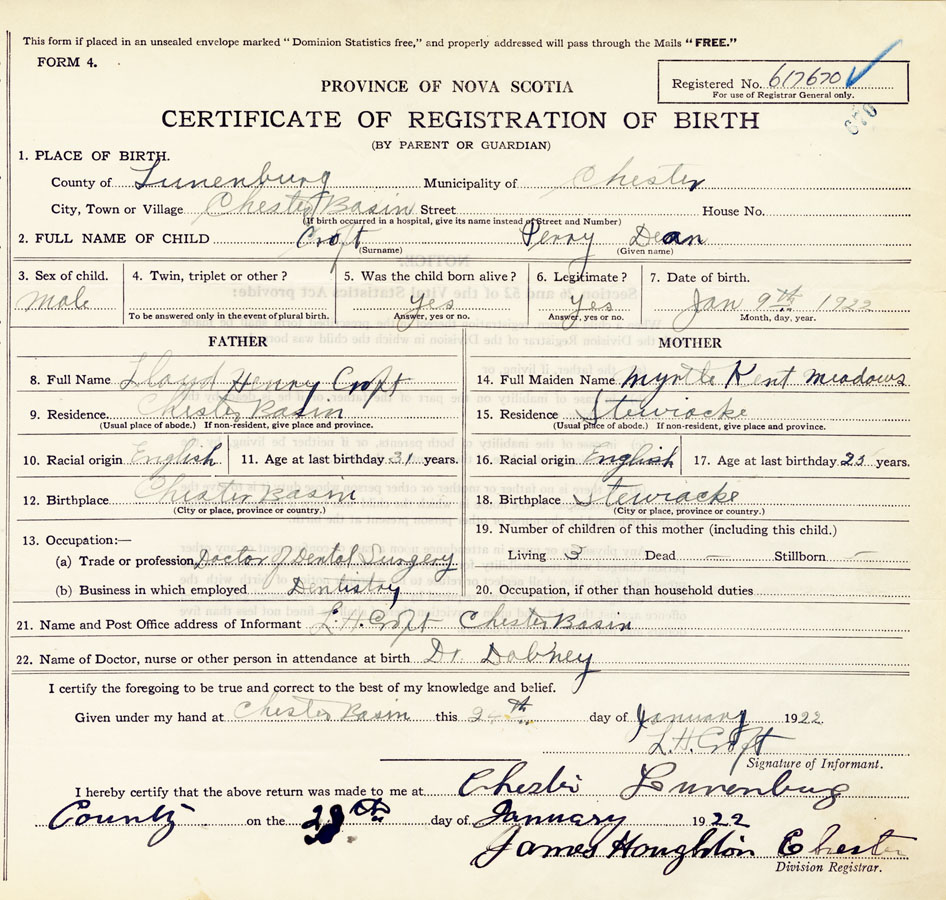 This form if placed in an unsealed envelope marked "Dominion Statistics free," and properly addressed will pass through the Mails "FREE."
FORM 4.
Registered No. 617670
For use of Registrar General only.
670
PROVINCE OF NOVA SCOTIA
CERTIFICATE OF REGISTRATION OF BIRTH
(BY PARENT OR GUARDIAN)
1. PLACE OF BIRTH.
County of Lunenburg Municipality of Chester
City, Town or Village Chester Basin Street House No.
(If birth occurred in a hospital, give its name instead of Street and Number)
2. FULL NAME OF CHILD Croft Perry Dean
(Surname) (Given name)
3. Sex of child. 4. Twin, triplet or other? 5. Was the child born alive? 6. Legitimate? 7. Date of birth.
Male Yes Yes Jan 9th 1922
To be answered only in the event of plural birth. Answer, yes or no. Answer, yes or no. Month, day, year.
FATHER MOTHER
8. Full Name Lloyd Henry Croft 14. Full Maiden Name Myrtle Kent Meadows
9. Residence. Chester Basin 15. Residence Stewiacke
(Usual place of abode.) If non-resident, give place and province. (Usual place of abode.) If non-resident, give place and province.
10. Racial origin English 11. Age at last birthday 31 years. 16. Racial origin English 17. Age at last birthday 25 years.
12. Birthplace Chester Basin 18. Birthplace Stewiacke
(City or place, province or country.) (City or place, province or country.)
13. Occupation:— 19. Number of children of this mother (including this child.)
(a) Trade or profession Doctor of Dental Surgery Living 3 Dead — Stillborn —
(b) Business in which employed Dentistry 20. Occupation, if other than household duties
21. Name and Post Office address of Informant L. H. Croft Chester Basin
22. Name of Doctor, nurse or other person in attendance at birth Dr. Dabney
I certify the foregoing to be true and correct to the best of my knowledge and belief.
Given under my hand at Chester Basin this th day of January 1922
L. H. Croft
Signature of Informant.
I hereby certify that the above return was made to me at Chester Lunenburg
County on the th day of January 1922
James Houghton Chester
Division Registrar.